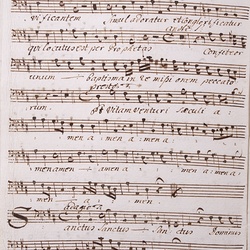 vificantem Simul adoratur et conglorificatur
qui locutus est per Prophetas Confiteor
unum baptisma in remisionem peccato
rum. et Vitam Venturi Sæculi a
men a men a men a
men amen amen a men a
men a men
adagio
Sanctus Sanctus Sanctus Dominus